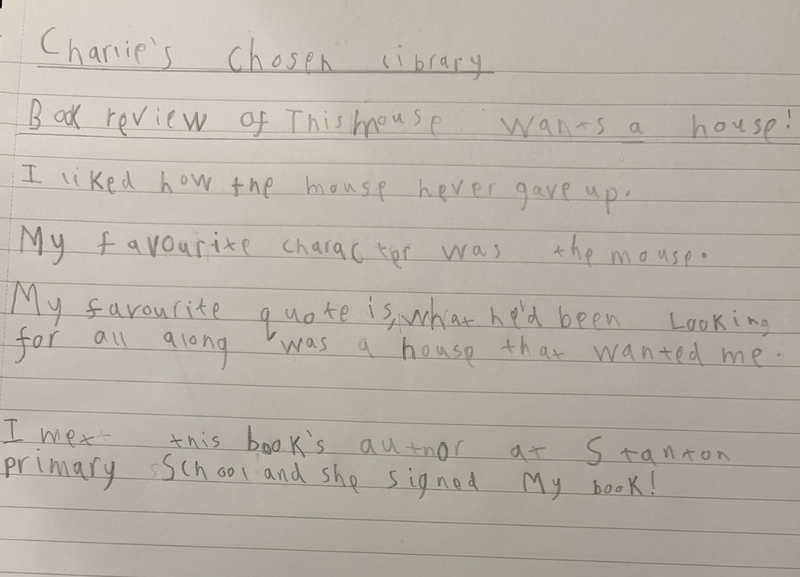 Charlie's Chosen library
Book review of This mouse wants a house!
I liked how the mouse never gave up.
My favourite character was the mouse.
My favourite quote is, what he'd been Looking
for all along was a house that wanted me.
I met this book's author at Stanton
primary School and she signed My book!